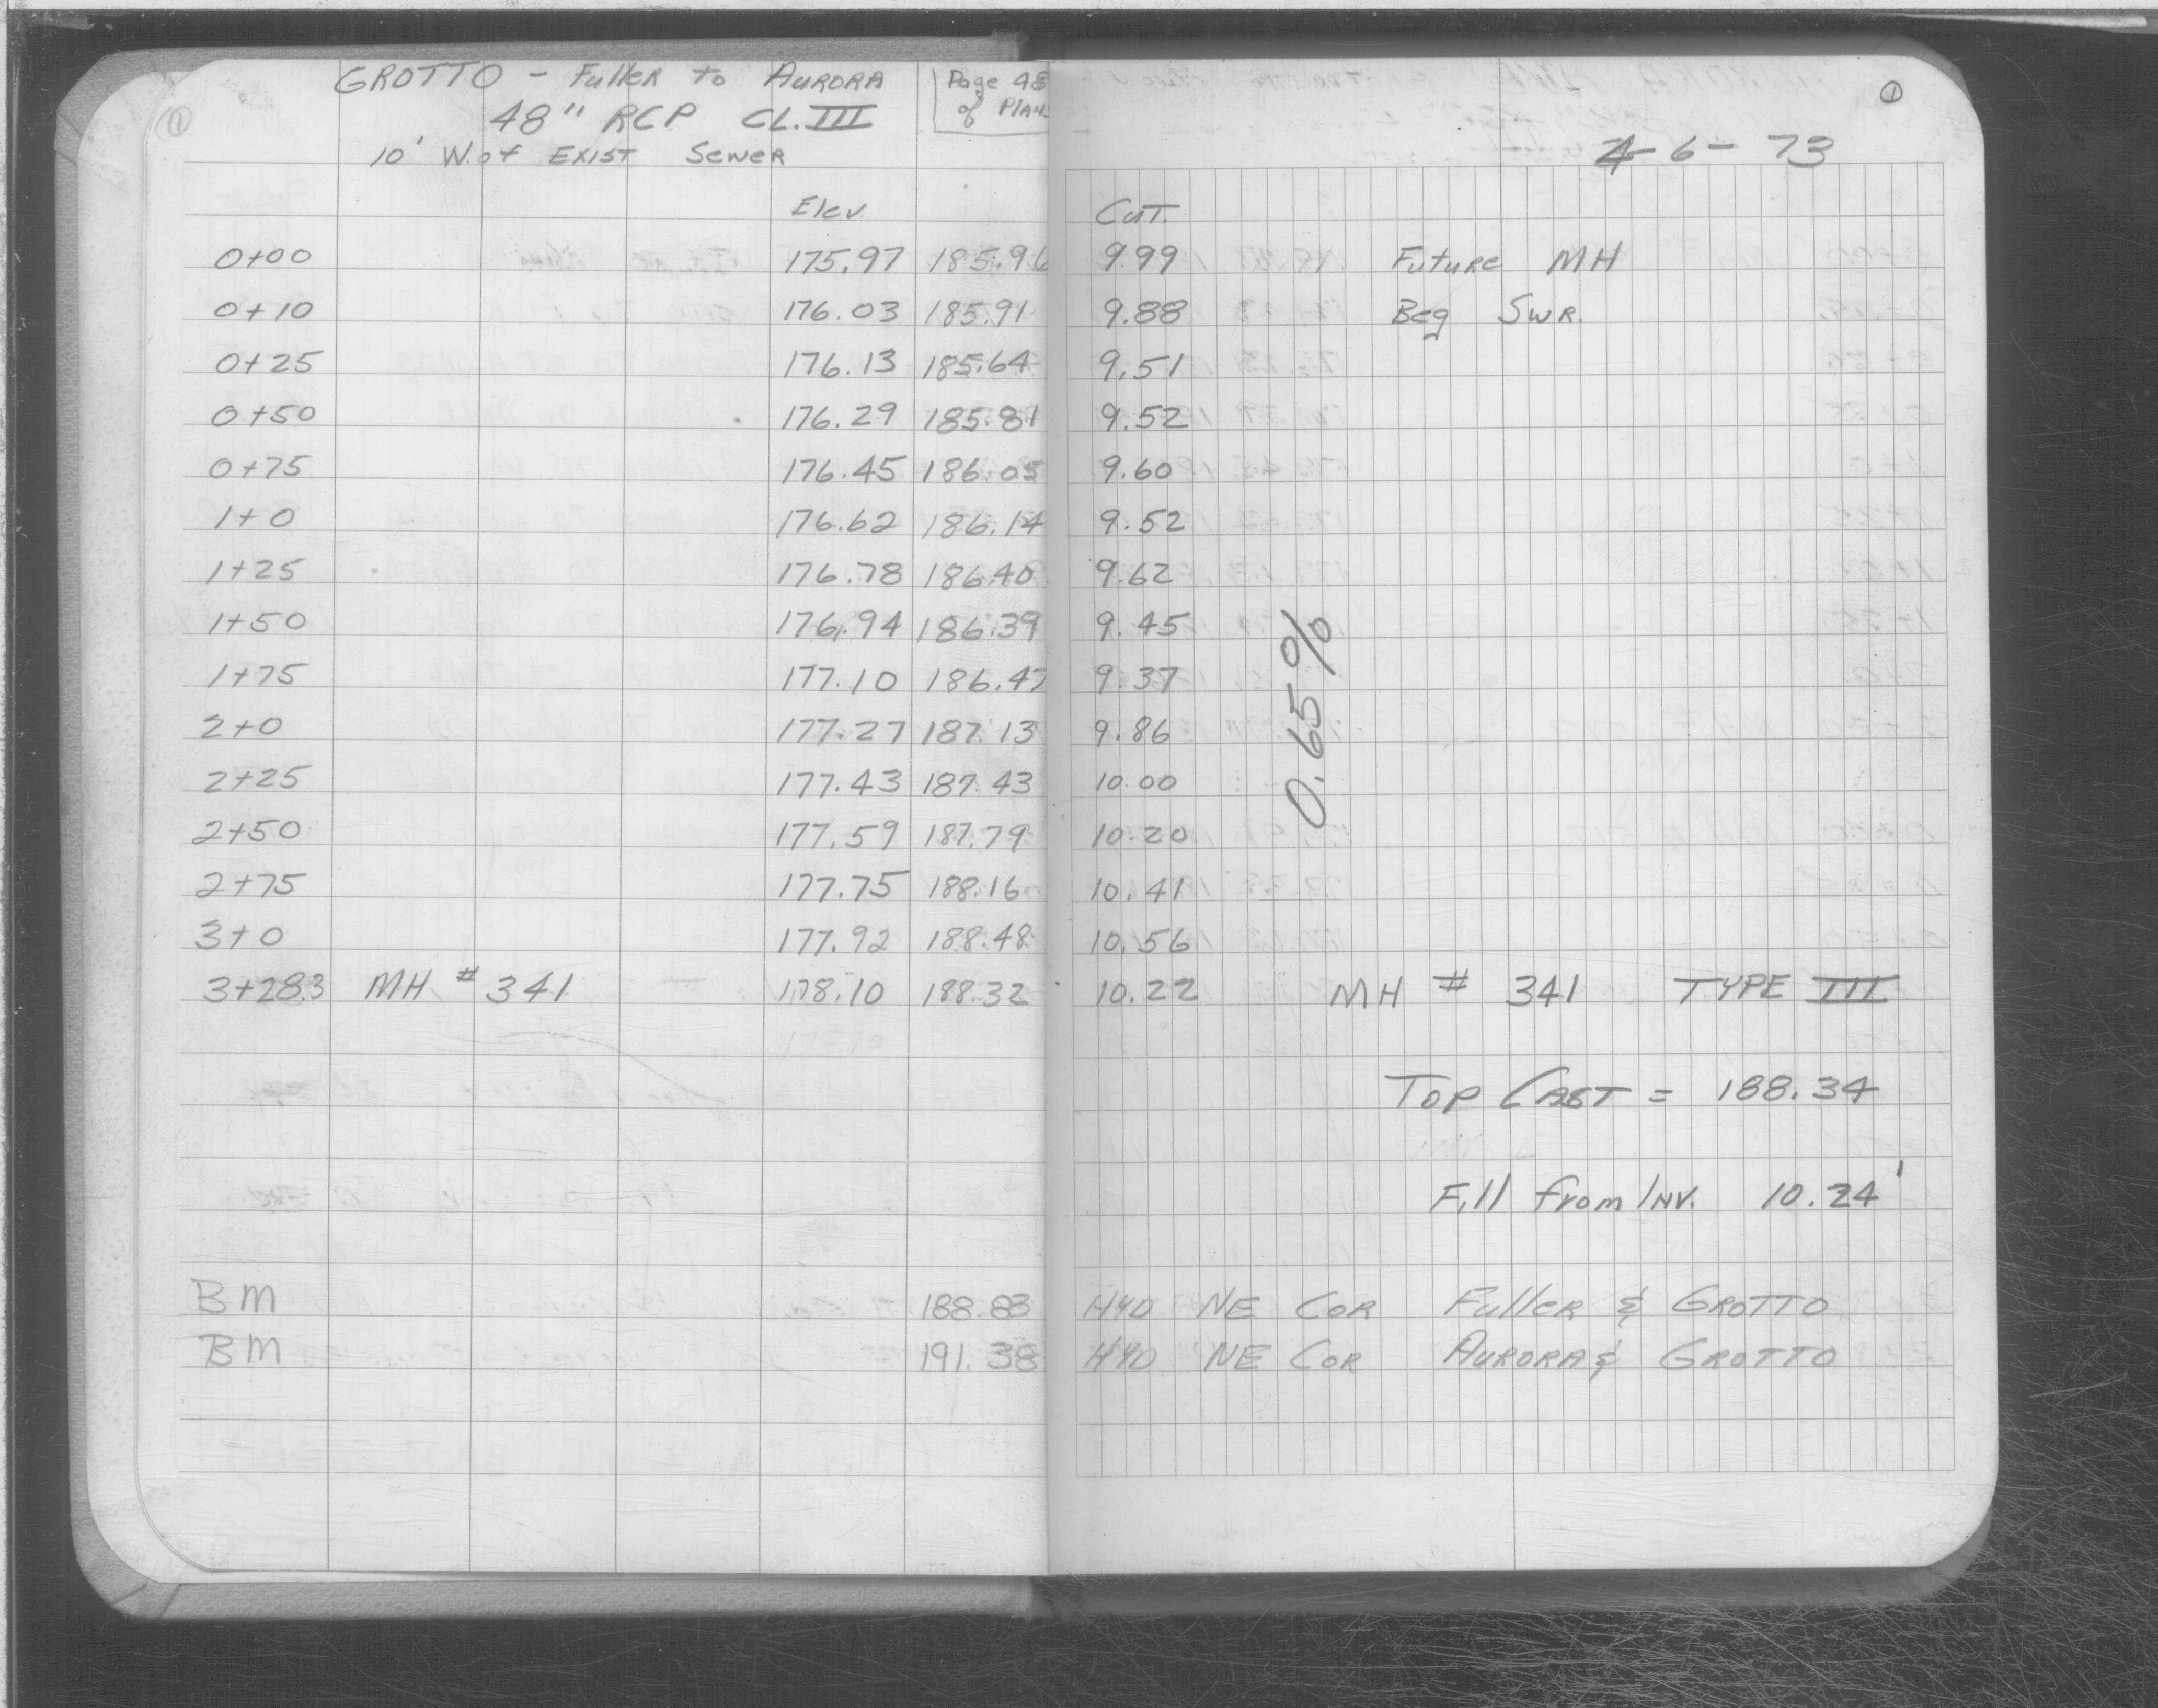 GROTTO - Fuller to AURORA
Page 48 of PLAN
48" RCP CL. III
10' W. of EXIST SEWER
1
4-6-73
Elev. Cut.
0+00 175.97 185.96 9.99 Future MH
0+10 176.03 185.91 9.88 Beg SWR.
0+25 176.13 185.64 9.51
0+50 176.29 185.81 9.52
0+75 176.45 186.05 9.60
1+0 176.62 186.14 9.52
1+25 176.78 186.40 9.62
1+50 176.94 186.39 9.45
1+75 177.10 186.47 9.37
2+0 177.27 187.13 9.86
2+25 177.43 187.43 10.00
2+50 177.59 187.79 10.20
2+75 177.75 188.16 10.41
3+0 177.92 188.48 10.56
0.65%
3+28.3 MH # 341 178.10 188.32 10.22 MH # 341 TYPE III
TOP CAST = 188.34
Fill from INV. 10.24'
BM 188.83 HYD NE COR Fuller & GROTTO
BM 191.38 HYD NE COR AURORA & GROTTO